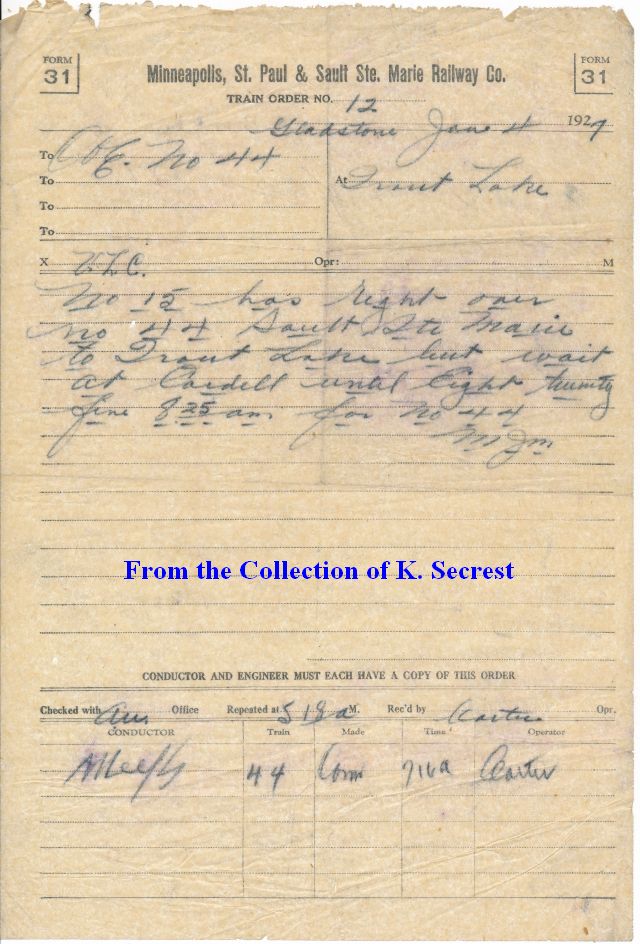 FORM 31
Minneapolis, St. Paul & Sault Ste. Marie Railway Co.
FORM 31
TRAIN ORDER NO. 12
Gladstone Jan 4 1927
To C&E. No 44
To
At Trout Lake
To
To
X Opr: M
No 15 has right over
No 44 Sault Ste Marie
to Trout Lake but wait
at Cordell until Eight twenty
five 8 25 am for No 44
From the Collection of K. Secrest
CONDUCTOR AND ENGINEER MUST EACH HAVE A COPY OF THIS ORDER
Checked with Office Repeated at 5 18 a M. Rec'd by Carter Opr.
CONDUCTOR Train Made Time Operator
44 Com 716a Carter